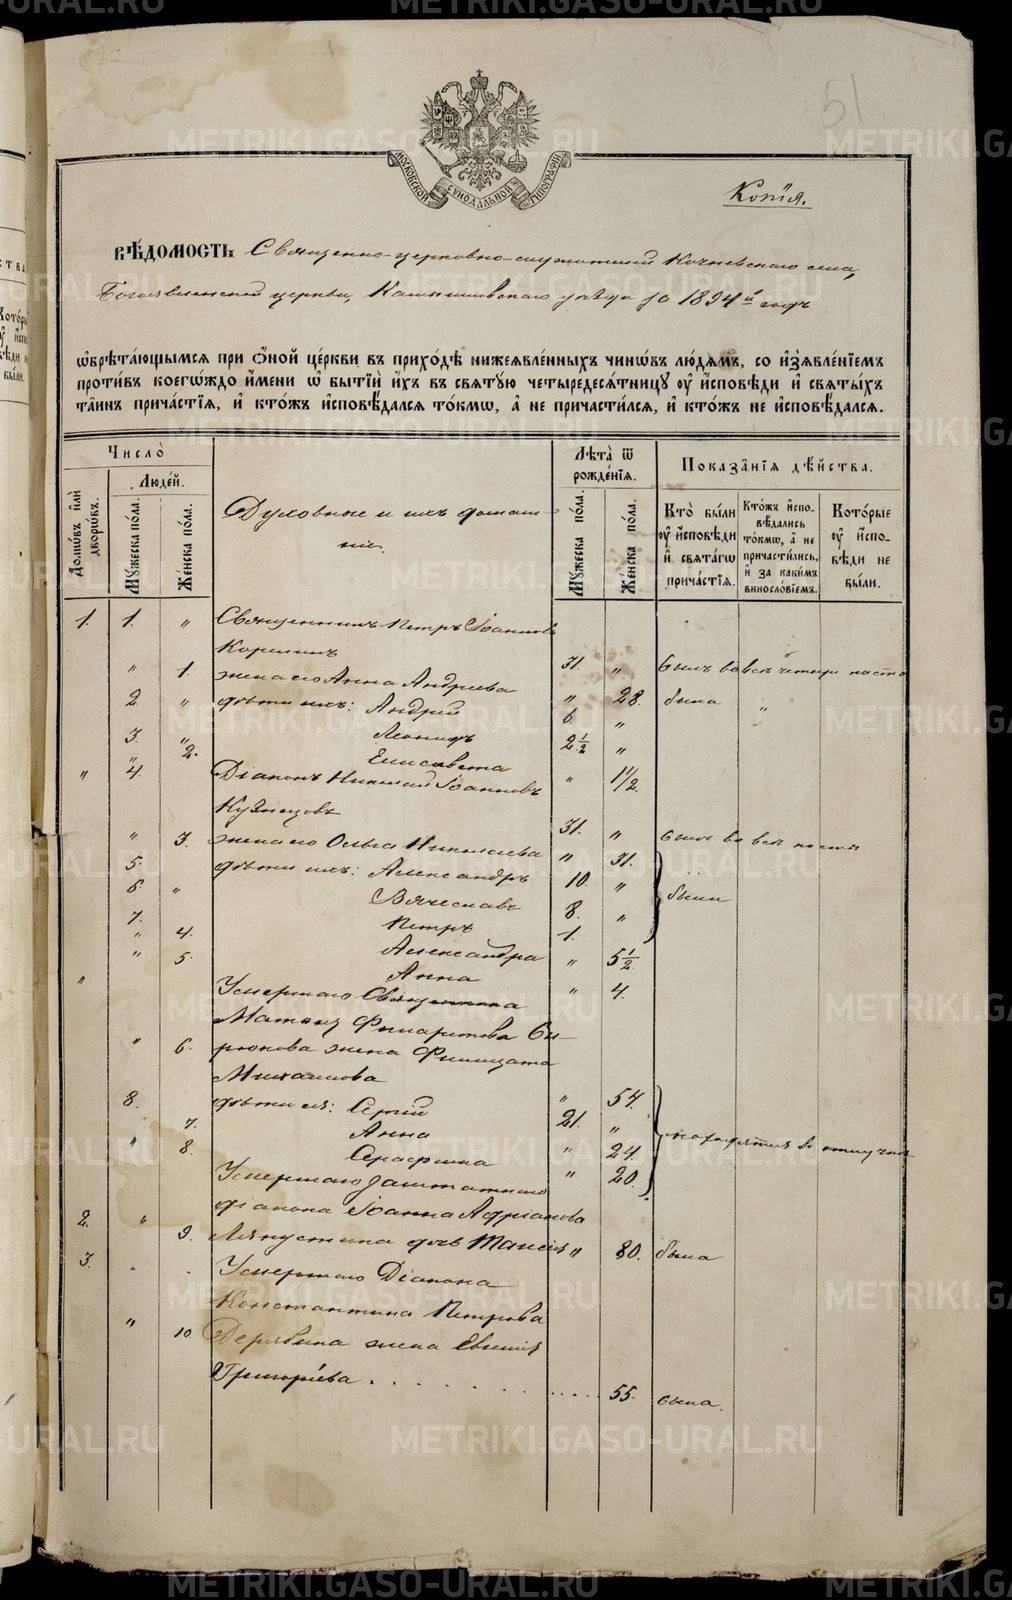 51
МОСКОВСКОЙ СѴНОДАЛЬНОЙ ТИПОГРАФІИ
Копія.
ВѢ́ДОМОСТЬ Священно-церковно-служителей Кочневскаго села,
Богоявленской церкви, Камышловскаго уѣзда за 1894й годъ
ѡ҆брѣта́ющымсѧ при ѻ҆́ной це́ркви въ прихо́дѣ нижеѧвле́нныхъ чинѡ́въ лю́демъ, со и҆з̾ѧвле́нїемъ
проти́въ коегѡ́ждо и҆́мени ѡ҆ бытїѝ и҆́хъ въ свѧту́ю четыредесѧ́тницу ᲂу҆ и҆сповѣ́ди и҆ свѧты́хъ
та̑инъ прича́стїѧ, и҆ кто́жъ и҆сповѣ́далсѧ то́кмѡ, а҆ не причасти́лсѧ, и҆ кто́жъ не и҆сповѣ́далсѧ.
Число̀
Люде́й.
Домѡ́въ и҆лѝ дворѡ́въ.
Му́жеска по́ла.
Же́нска по́ла.
Духовные и ихъ домаш-
ніе.
Лѣ́та ѿ рожде́нїѧ.
Му́жеска по́ла.
Же́нска по́ла.
Показа̑нїѧ дѣ́йства.
Кто̀ бы́ли ᲂу҆ и҆сповѣ́ди и҆ свѧта́гѡ прича́стїѧ.
Кто́жъ и҆спо-вѣ́дались то́кмѡ, а҆ не причасти́лись, и҆ за каки́мъ виносло́вїемъ.
Кото́рые ᲂу҆ и҆спо-вѣ́ди не бы́ли.
1. 1. " Священникъ Петръ Іоанновъ
Коринъ 31. " былъ во всѣ четыре поста
" 1. жена его Анна Андреева " 28. была "
2 " дѣти ихъ: Андрей 6. "
3. " Леонидъ 2½ "
" 2. Елисавета " 1½.
" 4. Діаконъ Николай Іоанновъ
Кузнецовъ 31. " былъ во всѣ посты
" 3. жена его Ольга Николаева " 31.
5. дѣти ихъ: Александръ 10. " были
6. " Вячеславъ 8. "
7. Петръ 1.
" 4. Александра " 5½.
" 5. Анна " 4.
" Умершаго Священника
Матѳея Филаретова Би-
" 6. рюкова жена Филицата
Михаилова " 54.
8. дѣти ея: Сергій 21. "
7. Анна " 24. находятся въ отлучкѣ
" 8. Серафима " 20.
Умершаго заштатнаго
2. " діакона Іоанна Адріанова
9. Ляпустина дочь Таисія " 80. была
3. Умершаго Діакона
Константина Петрова
" 10 Дерябина жена Евгенія
Григорьева . . . . . . . . . . . 55. была.
METRIKI.GASO-URAL.RU